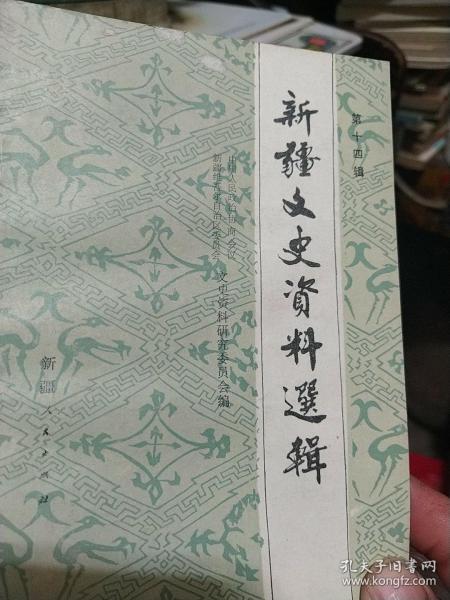 第十四辑
新疆文史资料選輯
中国人民政治协商会议
新疆维吾尔自治区委员会
文史资料研究委员会编
新疆人民出版社
孔夫子旧书网
www.kongfz.com